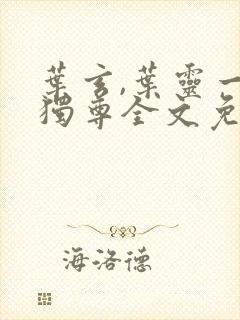 葉玄,葉靈一
獨尊全文免
海洛德